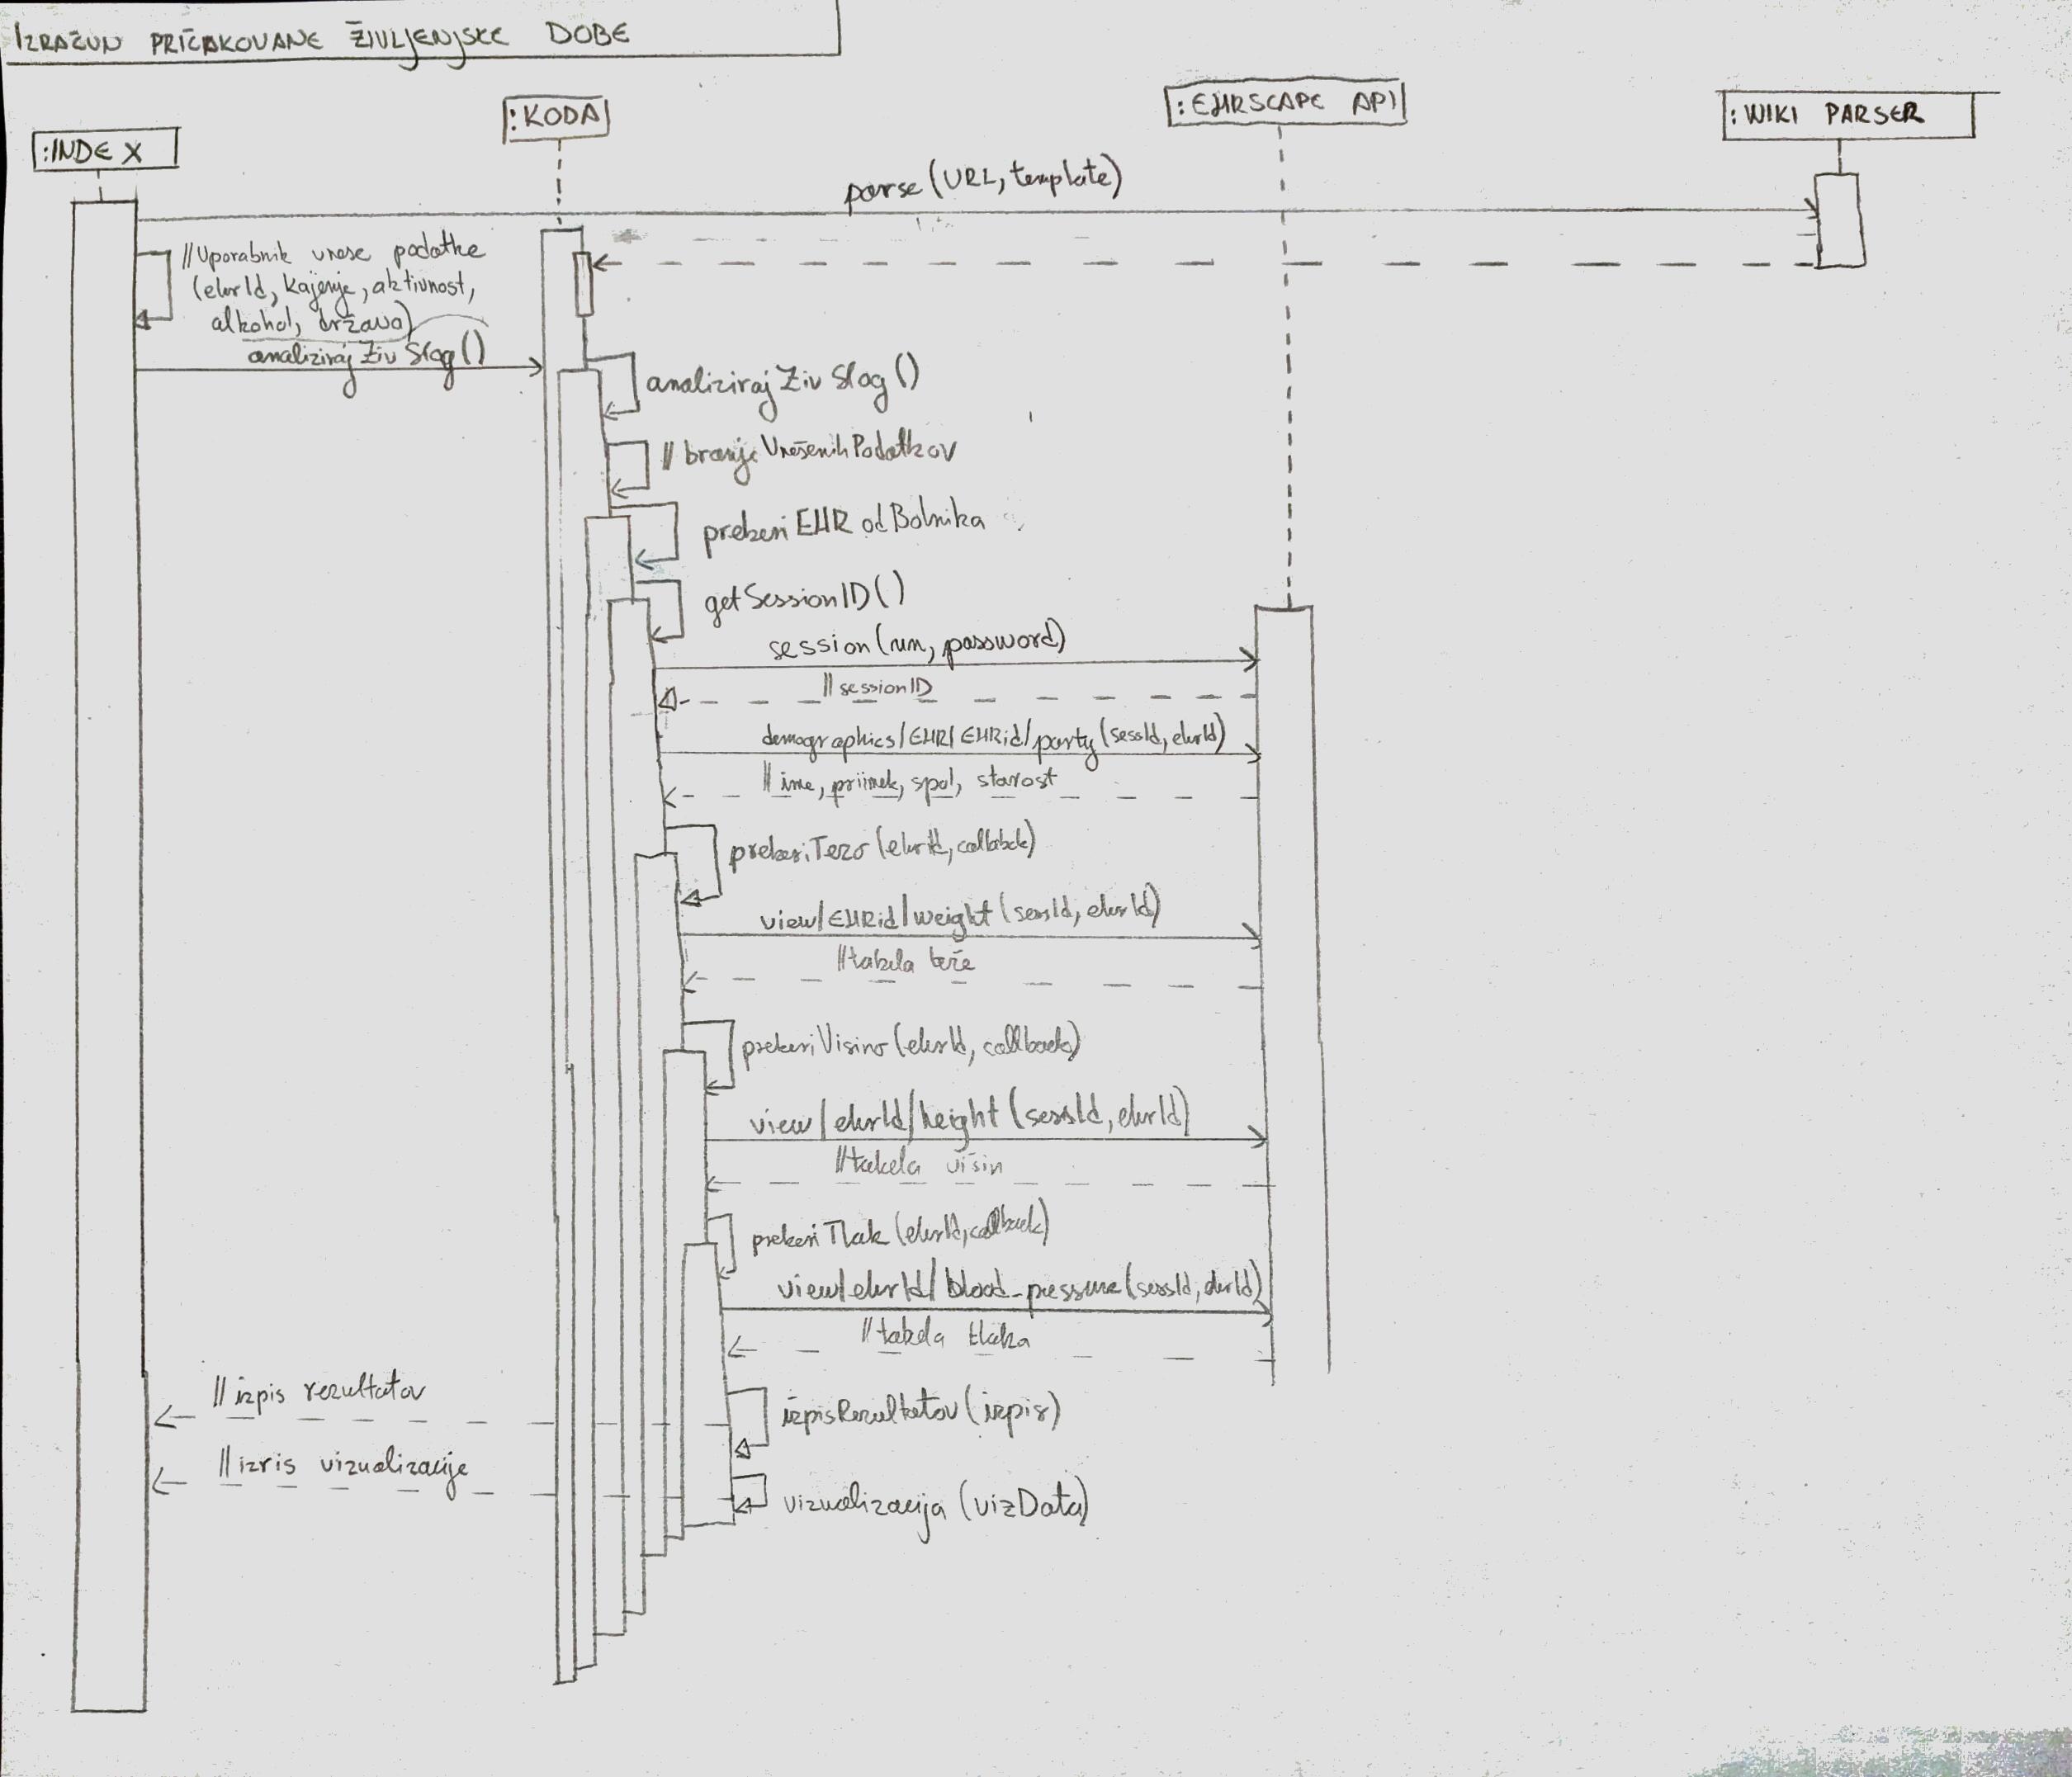 IZRAČUN PRIČAKOVANE ŽIVLJENJSKE DOBE
:INDEX
:KODA
:EHRSCAPE API
:WIKI PARSER
parse(URL, template)
//Uporabnik vnese podatke
(ehrId, kajenje, aktivnost,
alkohol, država)
analizirajZivSlog()
analizirajZivSlog()
//branjeVnešenihPodatkov
preberiEHRodBolnika
getSessionID()
session(un, password)
//sessionID
demographics/EHR/EHRid/party(sessId, ehrId)
//ime, priimek, spol, starost
preberiTezo(ehrId, callback)
view/EHRid/weight(sessId, ehrId)
//tabela teže
preberiVisino(ehrId, callback)
view/ehrId/height(sessId, ehrId)
//tabela višin
preberiTlak(ehrId, callback)
view/ehrId/blood_pressure(sessId, ehrId)
//tabela tlaka
//izpis rezultatov
izpisRezultatov(izpis)
//izris vizualizacije
vizualizacija(vizData)